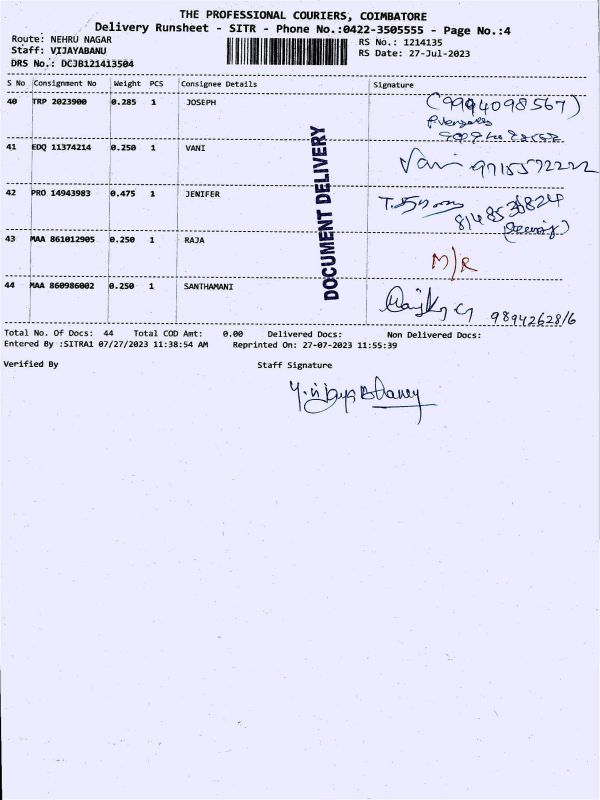 THE PROFESSIONAL COURIERS, COIMBATORE
Delivery Runsheet - SITR - Phone No.:0422-3505555 - Page No.:4
Route: NEHRU NAGAR
RS No.: 1214135
Staff: VIJAYABANU
RS Date: 27-Jul-2023
DRS No.: DCJB121413504
S No Consignment No Weight PCS Consignee Details Signature
40 TRP 2023900 0.285 1 JOSEPH (9994098567)
41 EDQ 11374214 0.250 1 VANI Vani 9715572222
42 PRO 14943983 0.475 1 JENIFER
43 MAA 861012905 0.250 1 RAJA M/R
44 MAA 860986002 0.250 1 SANTHAMANI 9894262816
DOCUMENT DELIVERY
Total No. Of Docs: 44 Total COD Amt: 0.00 Delivered Docs: Non Delivered Docs:
Entered By :SITRA1 07/27/2023 11:38:54 AM Reprinted On: 27-07-2023 11:55:39
Verified By Staff Signature